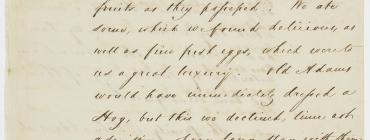 fruits as they passed. We ate
some, which we found delicious, as
well as fine fresh eggs, which were to
us a great luxury. Old Adams
would have immediately dressed a
Hog, but this we declined, time not